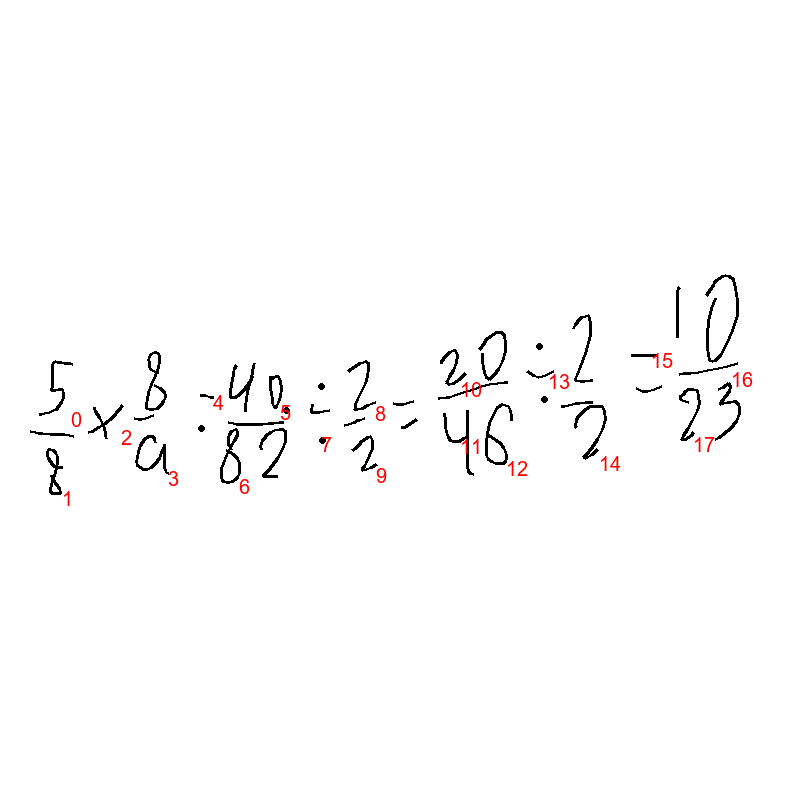 5/8 × 8/a = 40/82 ÷ 2/2 = 20/46 ÷ 2/2 = 10/23
0 1 2 3 4 5 6 7 8 9 10 11 12 13 14 15 16 17